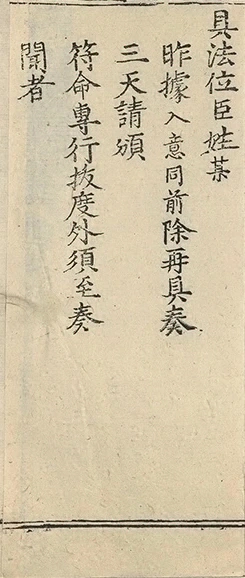 具法位臣姓某
昨據入意同前除再具奏
三天請頒
符命專行拔度外須至奏
聞者